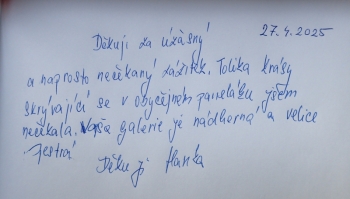 27. 4. 2025
Děkuji za úžasný
a naprosto nečekaný zážitek. Tolika krásy
skrývající se v obyčejném paneláku jsem
nečekala. Vaša galerie je nádherná a velice
pestrá
Děkuji Hanka